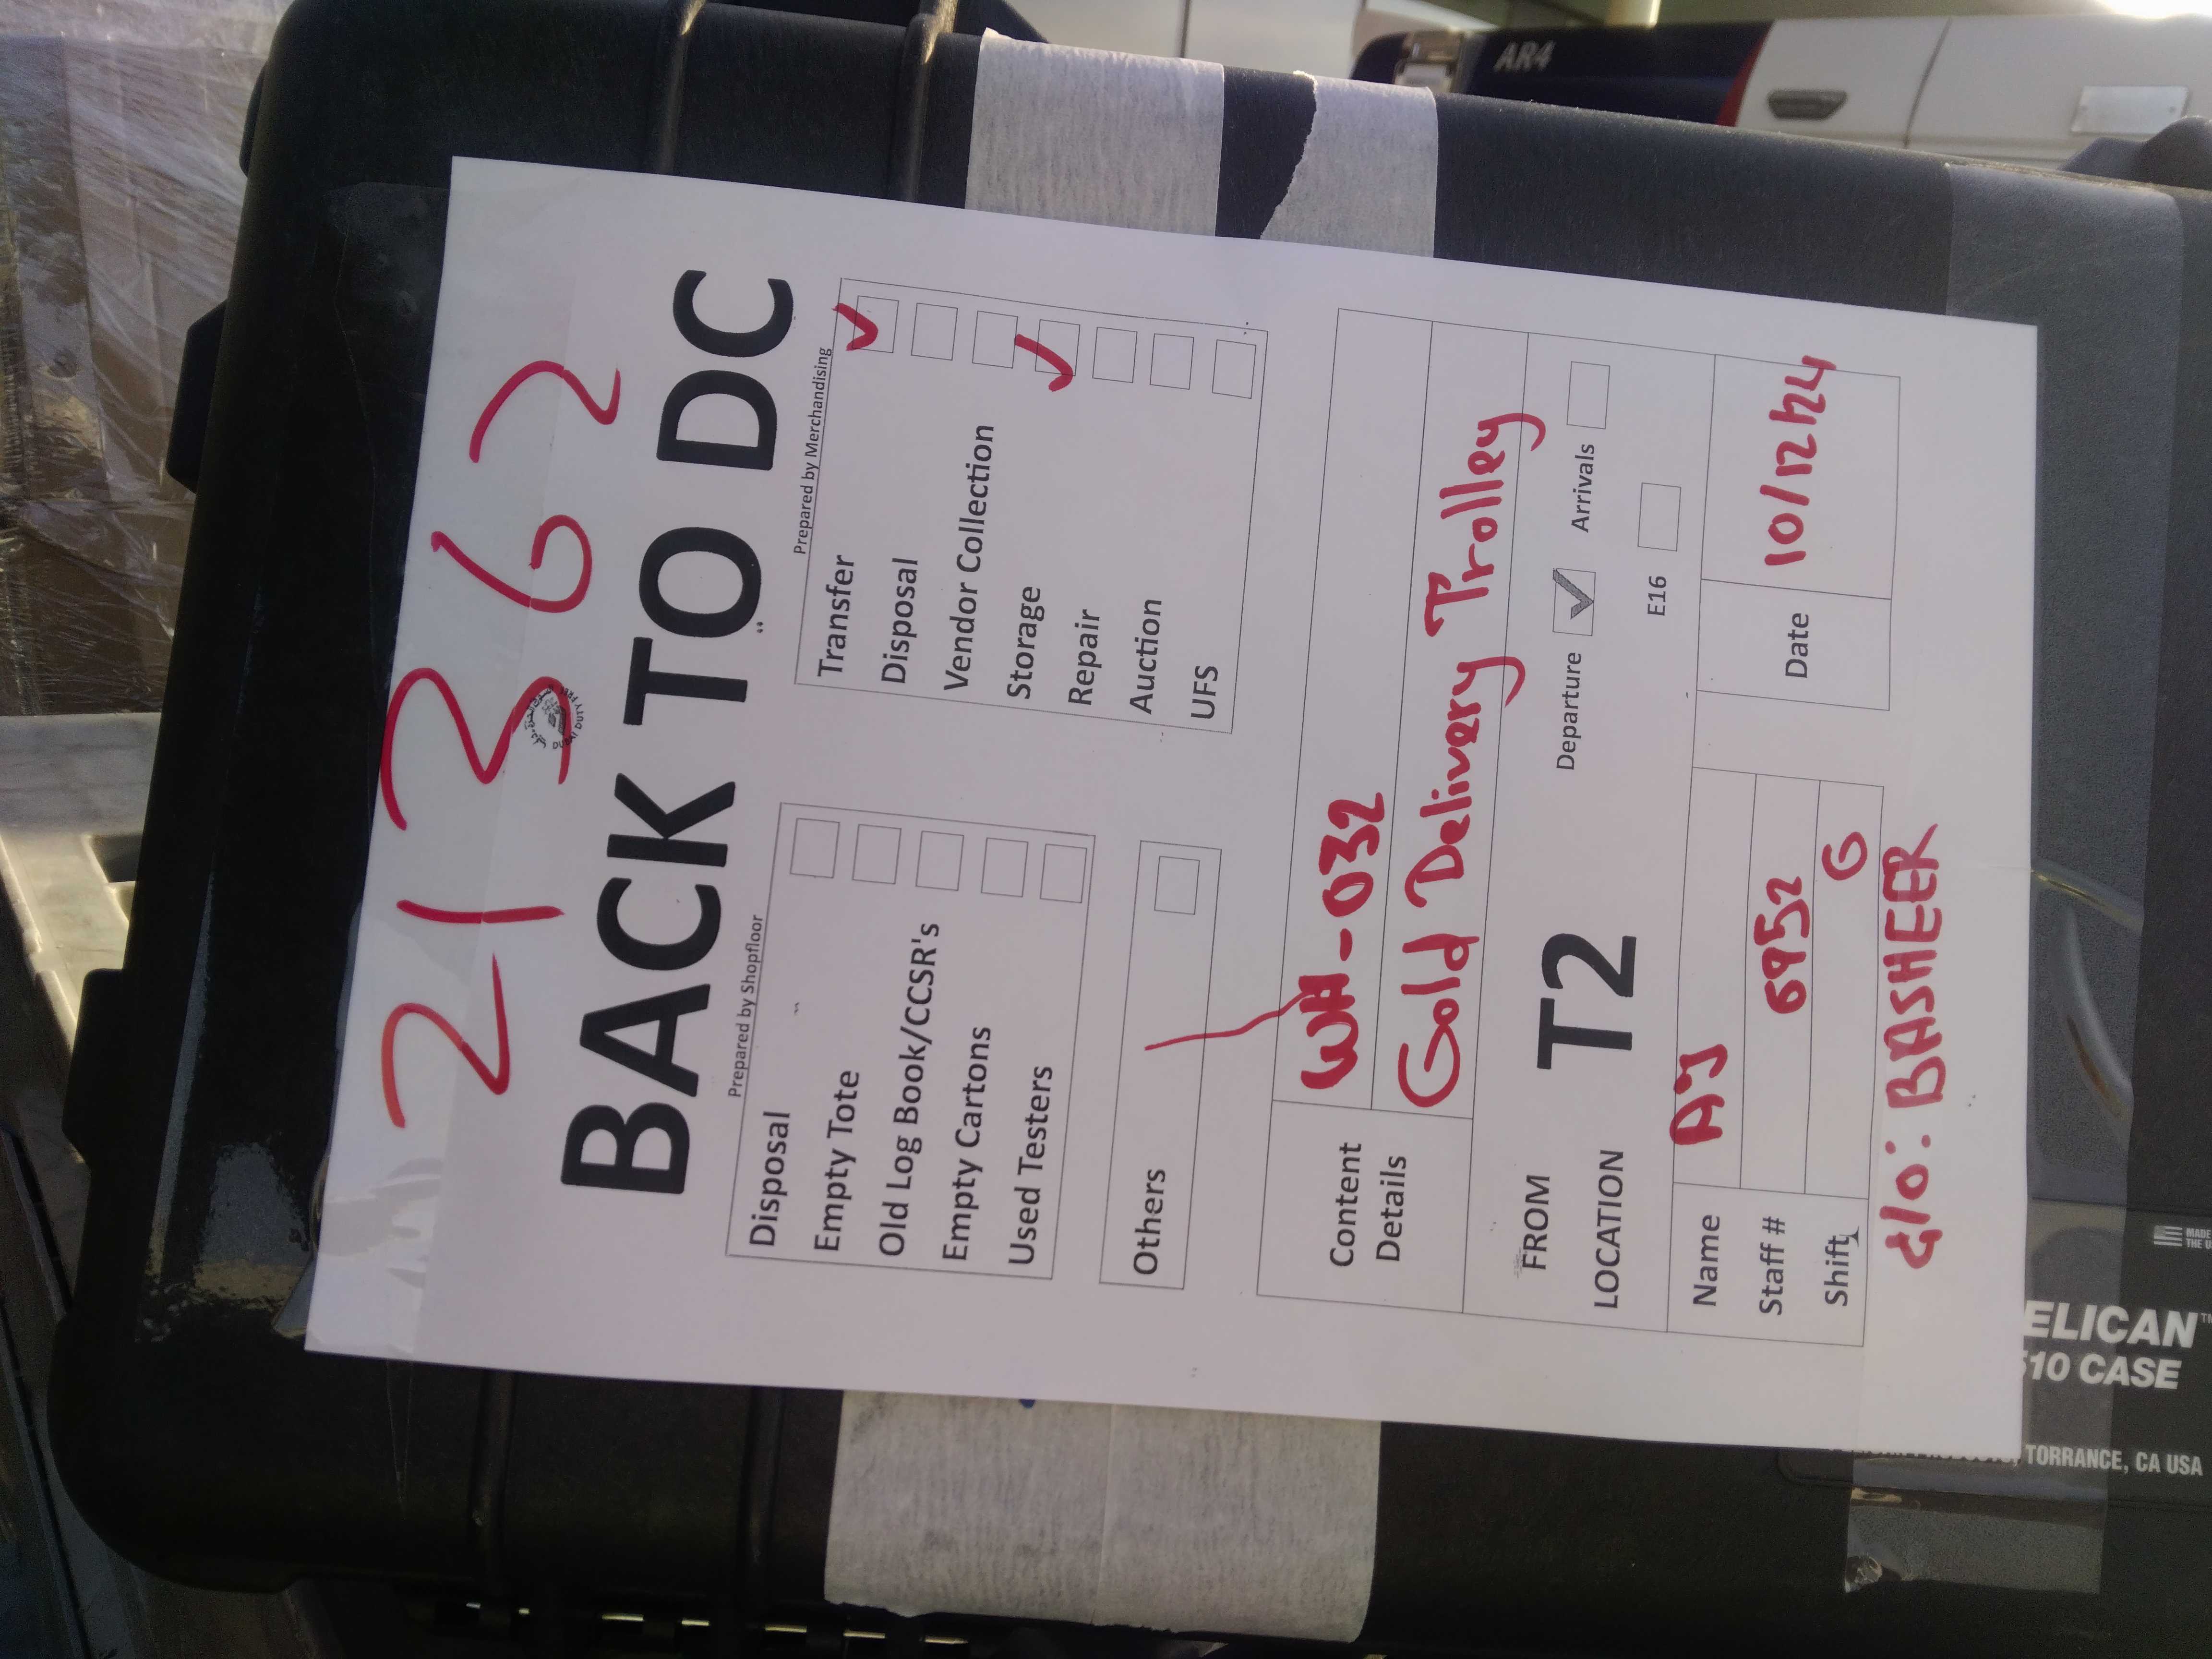 21362
DUBAI DUTY FREE
BACK TO DC
Prepared by Shopfloor
Disposal
Empty Tote
Old Log Book/CCSR's
Empty Cartons
Used Testers
Others
Prepared by Merchandising
Transfer
Disposal
Vendor Collection
Storage
Repair
Auction
UFS
Content Details
WH-032
Gold Delivery Trolley
FROM LOCATION
T2
Departure
Arrivals
E16
Name
AJ
Staff #
6952
Shift
G
Date
10/12/24
c/o: BASHEER
ELICAN™
510 CASE
TORRANCE, CA USA
MADE
THE U
AR4